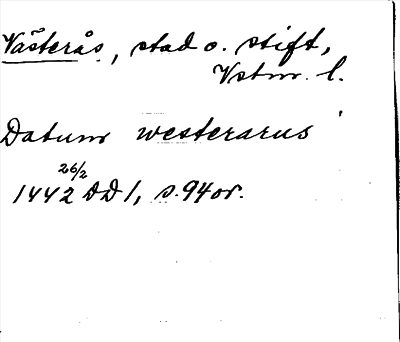 Västerås, stad o. stift,
Vstm. l.
Datum westerarus
26/2
1442 DD1, s. 94 or.